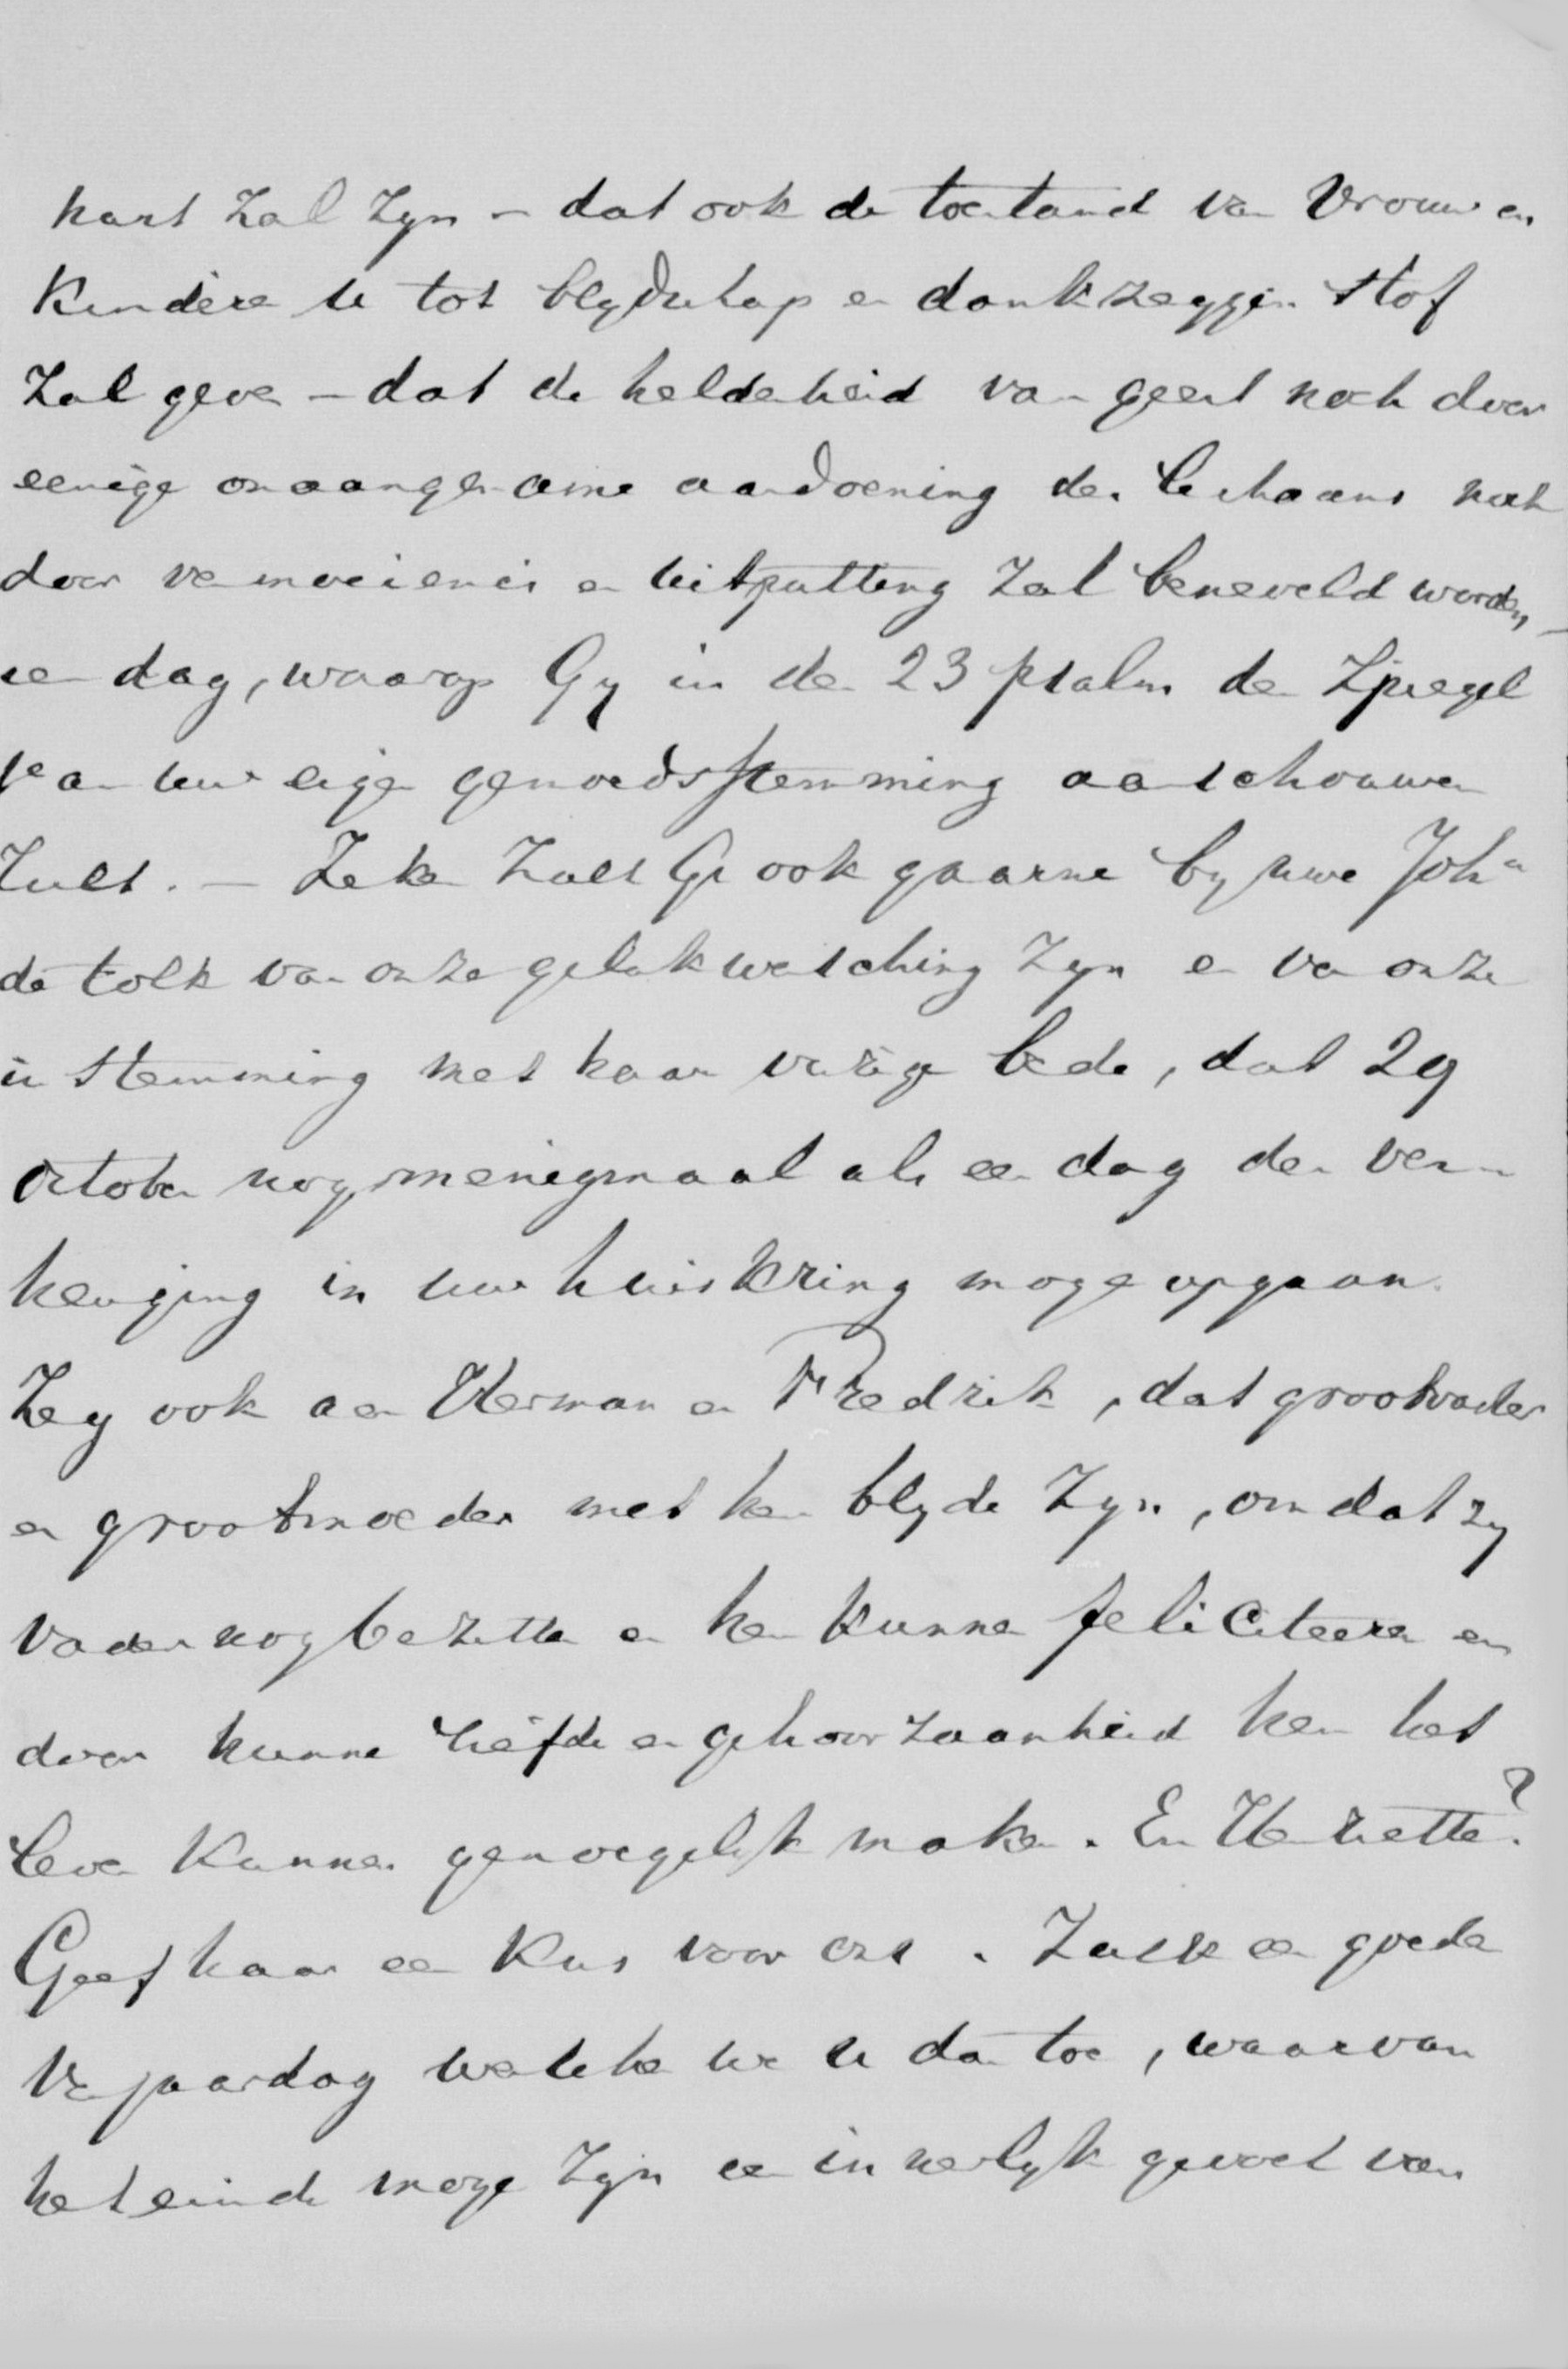 hart zal zyn – dat ook de toestand van Vrouw en
Kinderen u tot blydschap en dankzeggen stof
zal geven – dat de helderheid van geest noch door
eenige onaangename aandoening des lichaams noch
door vermoeienis en uitputting zal beneveld worden, –
een dag, waarop Gy in den 23 psalm den spiegel
van uw eigen gemoedsstemming aanschouwen
zult. – Zeker zult Gy ook gaarne by uwe Joha
de tolk van onze gelukwensching zyn en van onze
instemming met haar vurige bede, dat 29
October nog menigmaal als een dag der ver-
heuging in uw huiskring moge opgaan.
Zeg ook aan Herman en Fredrik, dat grootvader
en grootmoeder met hen blyde zyn, omdat zy
vader nog bezitten en hem kunnen feliciteeren en
door hunne liefde en gehoorzaamheid hem het
leven kunnen genoegelyk maken. En Henriette?
Geef haar een kus voor ons. Zulk een goeden
Verjaardag wenschen we u dan toe, waarvan
het einde moge zyn een innerlyk gevoel van